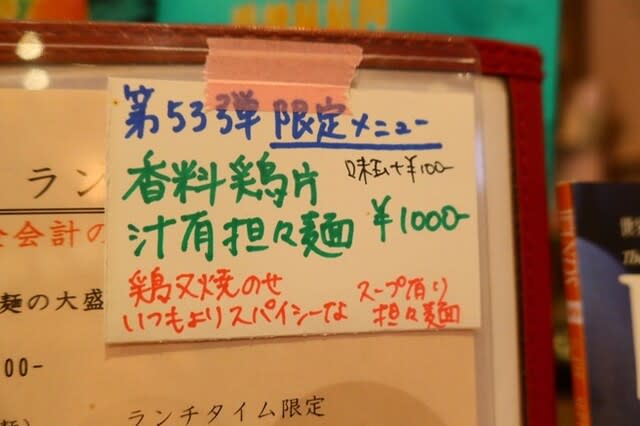 第53弾 限定メニュー
香料鶏片
味玉+¥100-
汁有担々麺 ¥1000-
鶏叉焼のせ
いつもよりスパイシーな
スープ有り
担々麺
ラン
会計の
麺の大盛
00-
ランチタイム限定